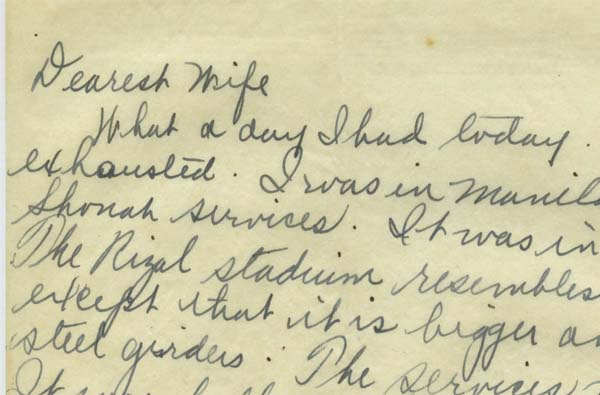 Dearest Wife
What a day I had today.
exhausted. I was in Manila
Shonah services. It was in
The Rizal stadium resembles
except that it is bigger an
steel girders. The services
It